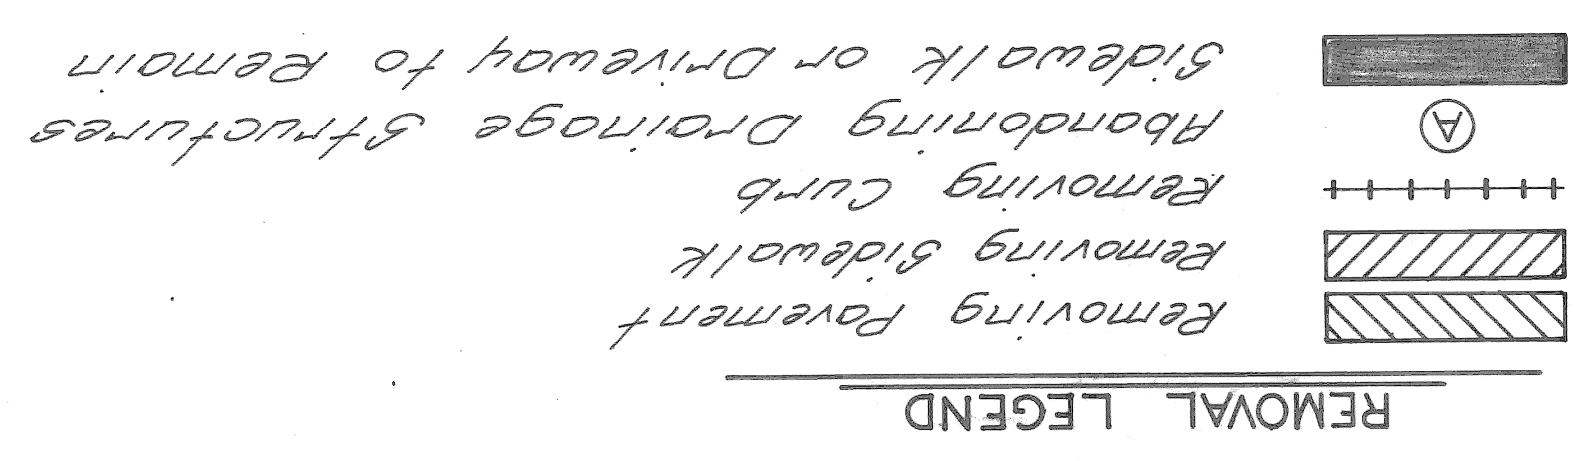 REMOVAL LEGEND
Removing Pavement
Removing Sidewalk
Removing Curb
A Abandoning Drainage Structures
Sidewalk or Driveway to Remain